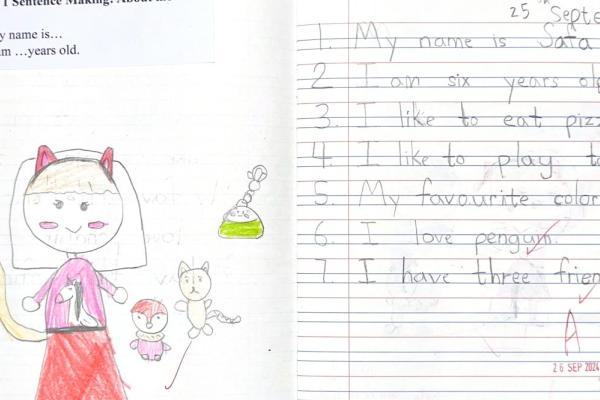 1 Sentence Making: About me
y name is…
am …years old.
25th Septe
1. My name is Safa
2 I am six years old
3. I like to eat pizz
4 I like to play to
5. My favourite color
6. I love pengam.
7. I have three frien
A
26 SEP 2024